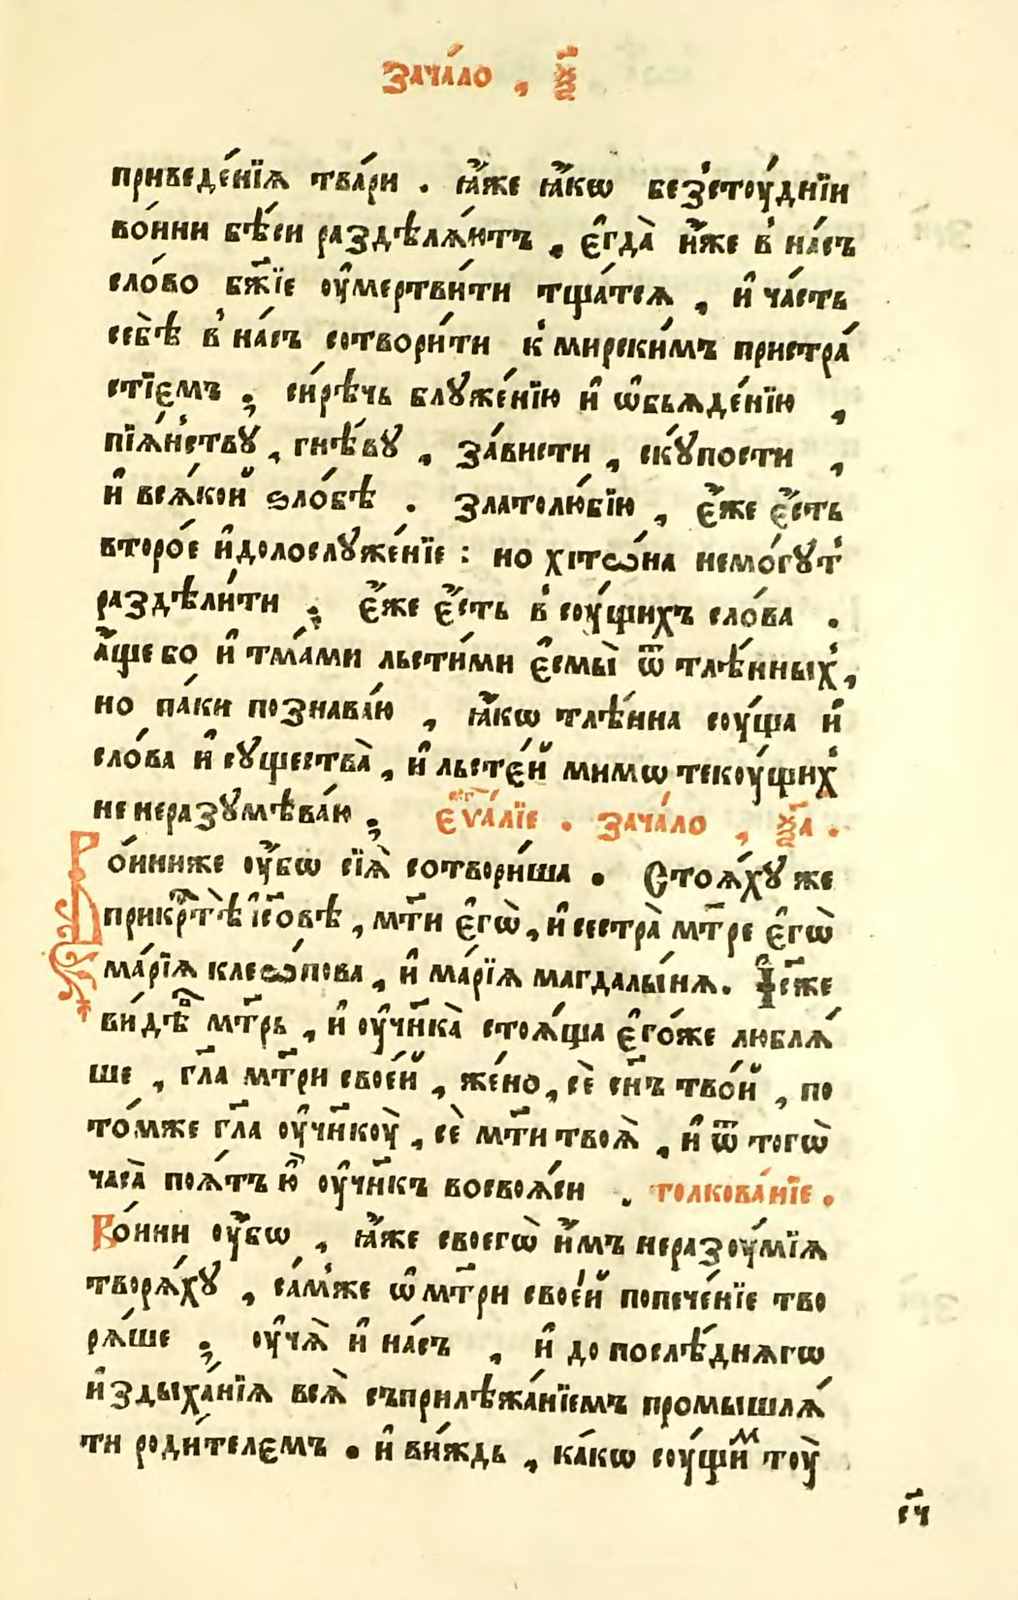 Зача́ло , ѯ҃
приведе́нїѧ тва́ри . ꙗ҆́же ꙗ҆́кѡ безстоу́днїи
во́ини бѣ́си раздѣлѧ́ютъ , є҆гда̀ и҆́же в на́съ
сло́во бж҃їе оу҆мертви́ти тщатсѧ , и҆ ча́сть
себѣ̀ в на́съ сотвори́ти к мирски́мъ пристра́
стїємъ ; си́рѣчь блꙋже́нїю и҆ ѡ҆бьѧде́нїю ,
пїѧ́нствꙋ , гнѣ́вꙋ , за́висти , скꙋпости ,
и҆ всѧ́кой ѕло́бѣ . златолю́бїю , є҆́же є҆́сть
второ́е и҆долослꙋже́нїе : но хїтѡ́на немо́гꙋт
раздѣли́ти ; є҆́же є҆́сть в соу́щихъ сло́ва .
а҆́ще бо и҆ тма́ми льсти́ми є҆смы̀ ѿ тлѣ́нных ,
но па́ки познава́ю , ꙗ҆́кѡ тлѣ́нна соу́ща и҆
сло́ва и҆ сꙋщества̀ , и҆ льсте́й мимѡ текоу́щих
не неразꙋмѣва́ю ; є҆ѵа́лїе . зача́ло , ѯ҃а .
Во́иниже оу҆́бѡ сїѧ̀ сотвори́ша . Стоѧ́хꙋ же
прикрⷭ҇тѣ і҆со҃вѣ , мт҃и є҆гѡ̀ , и҆ сестра̀ мт҃ре є҆гѡ̀
ма́рїѧ клеѡ́пова , и҆ ма́рїѧ магдалы́нѧ . І҆с҃же
ви́дѣⷡ мт҃рь , и҆ оу҆чн҃ка̀ стоѧ́ща є҆го́же люблѧ́
ше , гл҃а мт҃ри свое́й , же́но , сѐ сн҃ъ тво́й , по
то́мже гл҃а оу҆чн҃коу̀ , сѐ мт҃и твоѧ̀ , и҆ ѿ тогѡ̀
часа̀ поѧ́тъ ю҆̀ оу҆чн҃къ восвоѧ́си . толкова́нїе .
Во́ини оу҆́бѡ , ꙗ҆́же своегѡ̀ и҆́мъ неразоу́мїѧ
творѧ́хꙋ , са́мже ѡ҆ мт҃ри свое́й попече́нїе тво
рѧ́ше ; оу҆чѧ̀ и҆ на́съ , и҆ до послѣ́днѧгѡ
и҆здыха́нїѧ всѧ̀ съприлѣжа́нїемъ промышлѧ́
ти роди́телємъ . и҆ ви́ждь , ка́кѡ соу́щиⷨ тоу̀
сч҃